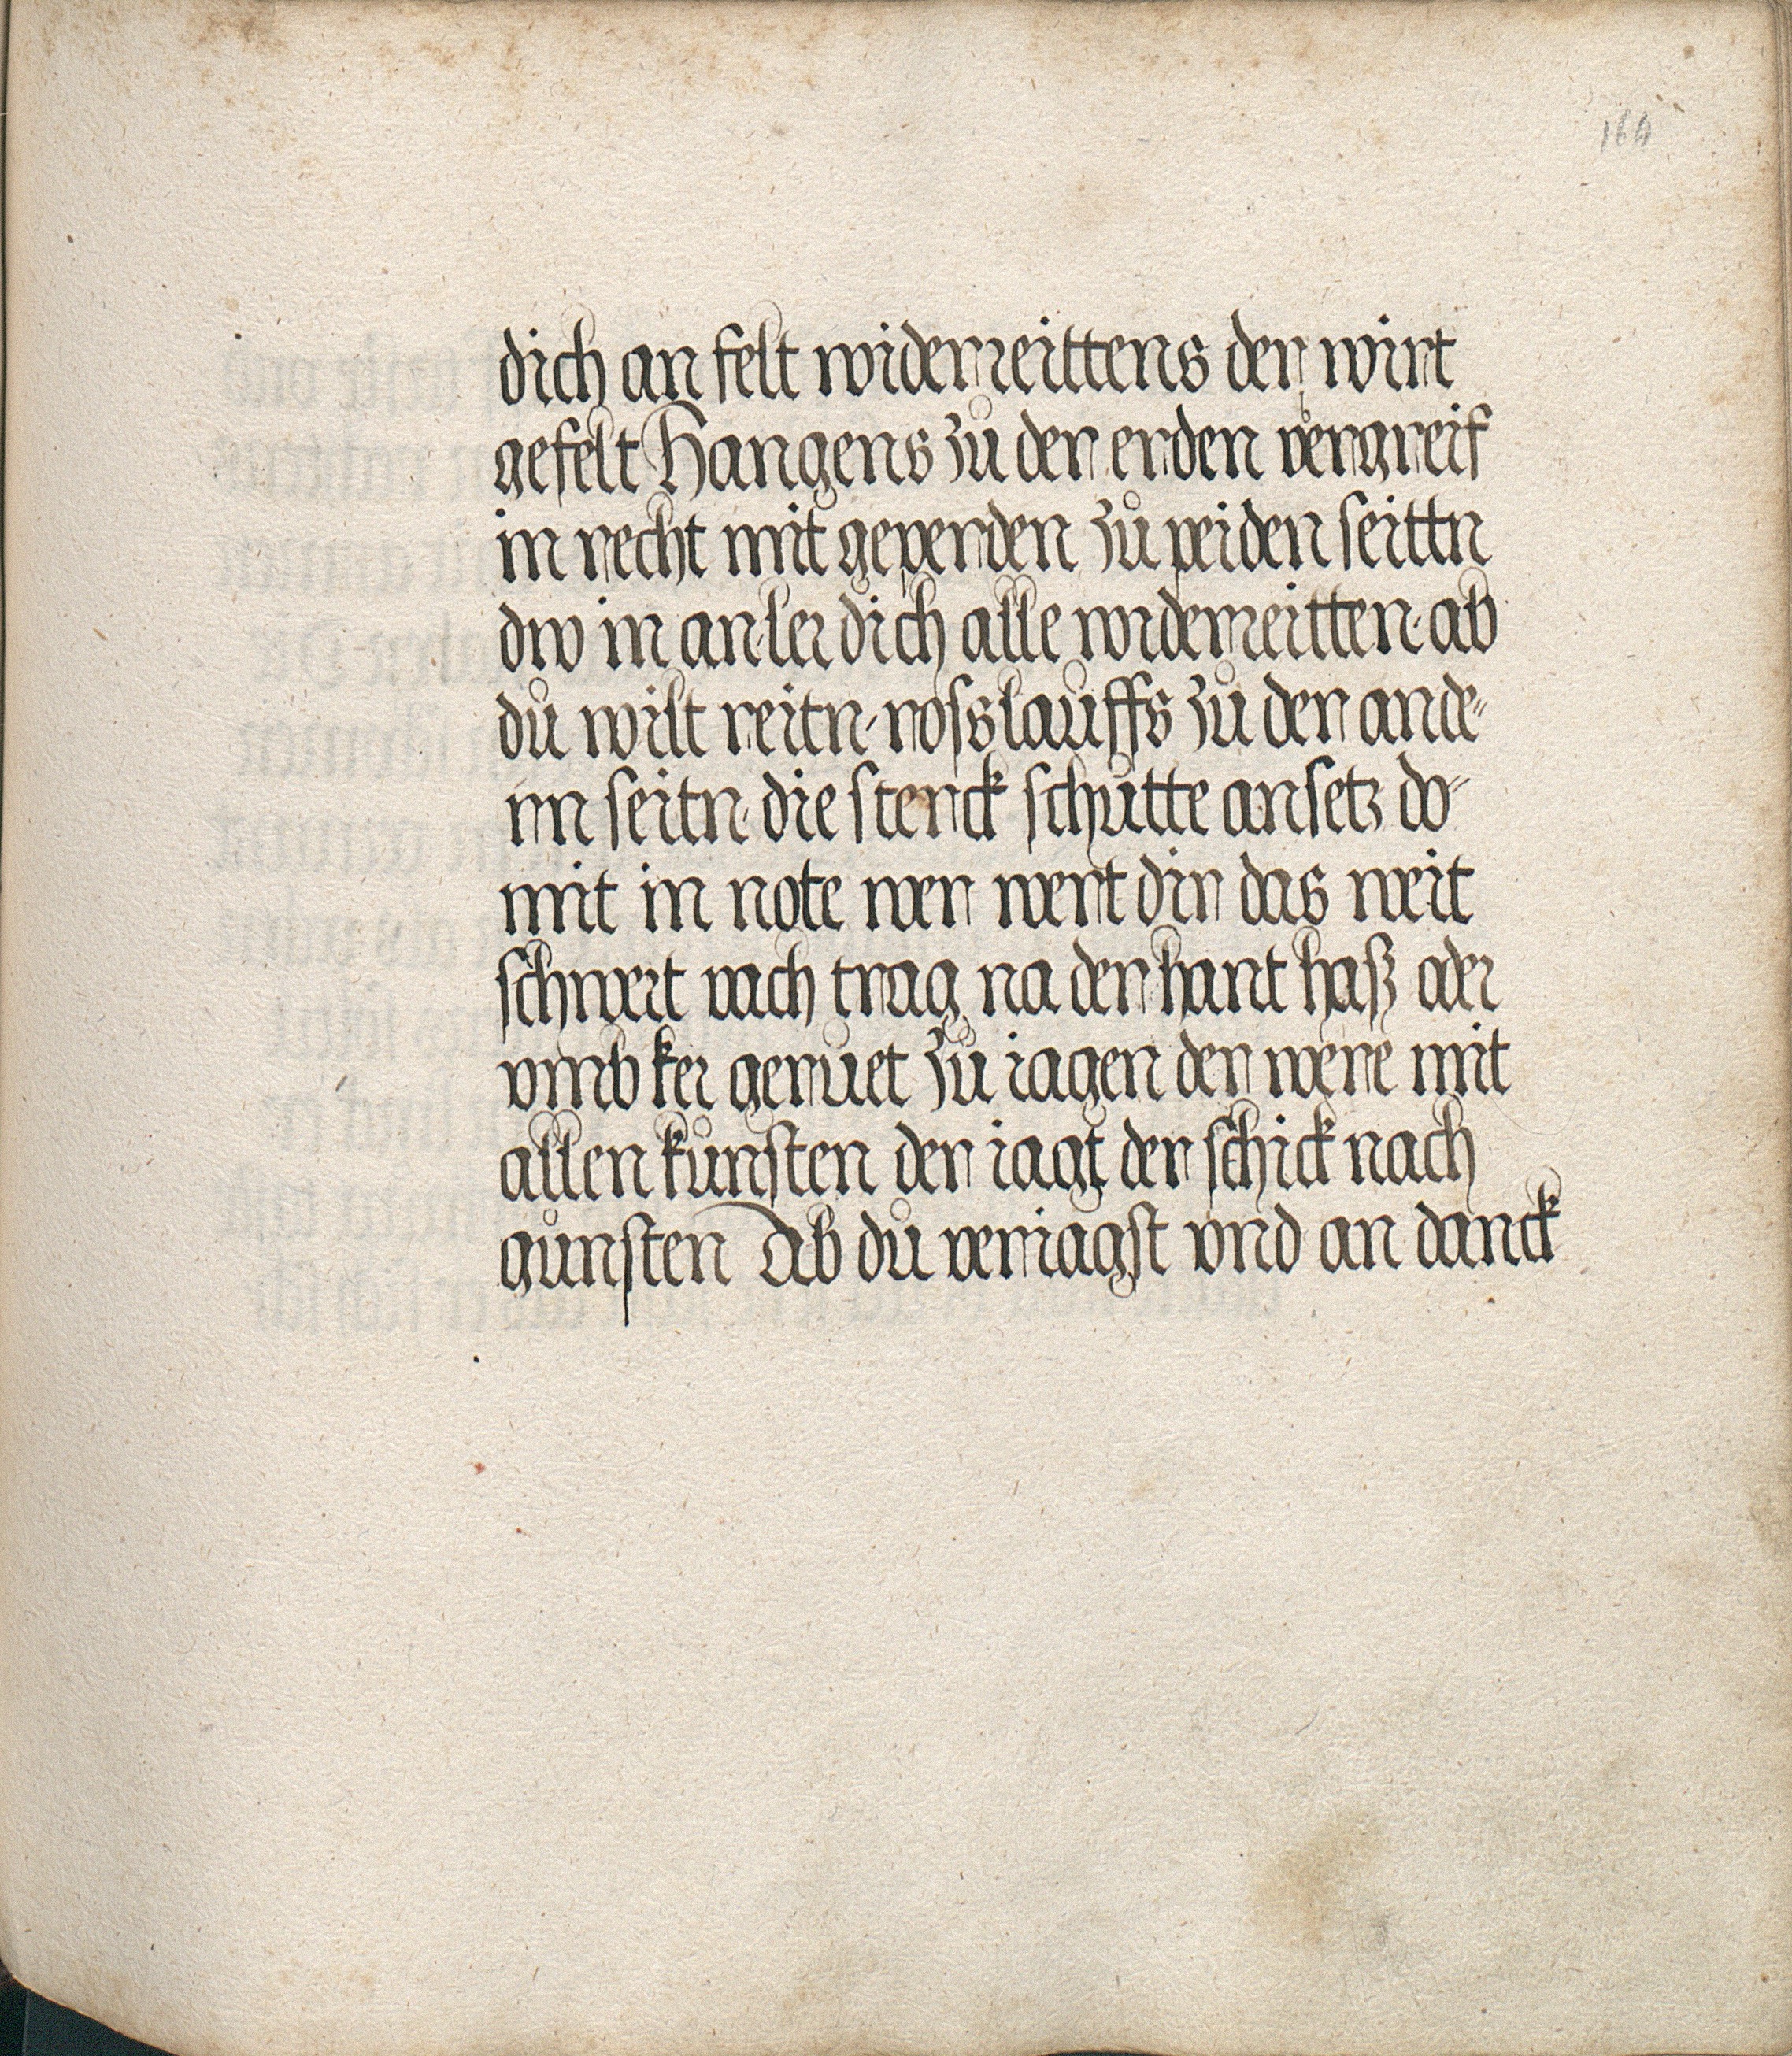 164
dich an felt widerreittens der wirt
gefelt Hangens zů der erden vergreif
in recht mit geperden zů peiden seittn
dw in an·ler dich alle widerreitten·ab
dů wilt reitn·rosslauffs zů der ande-
rn seitn·die sterck schütte ansetz do-
mit in note wer wert dir das weit
schwert vach trag na der hant haß oder
vmb ker geruet zů iagen der were mit
allen kůnsten der iagt der schick nach
gůnsten Ab dů veriagst vnd an danck